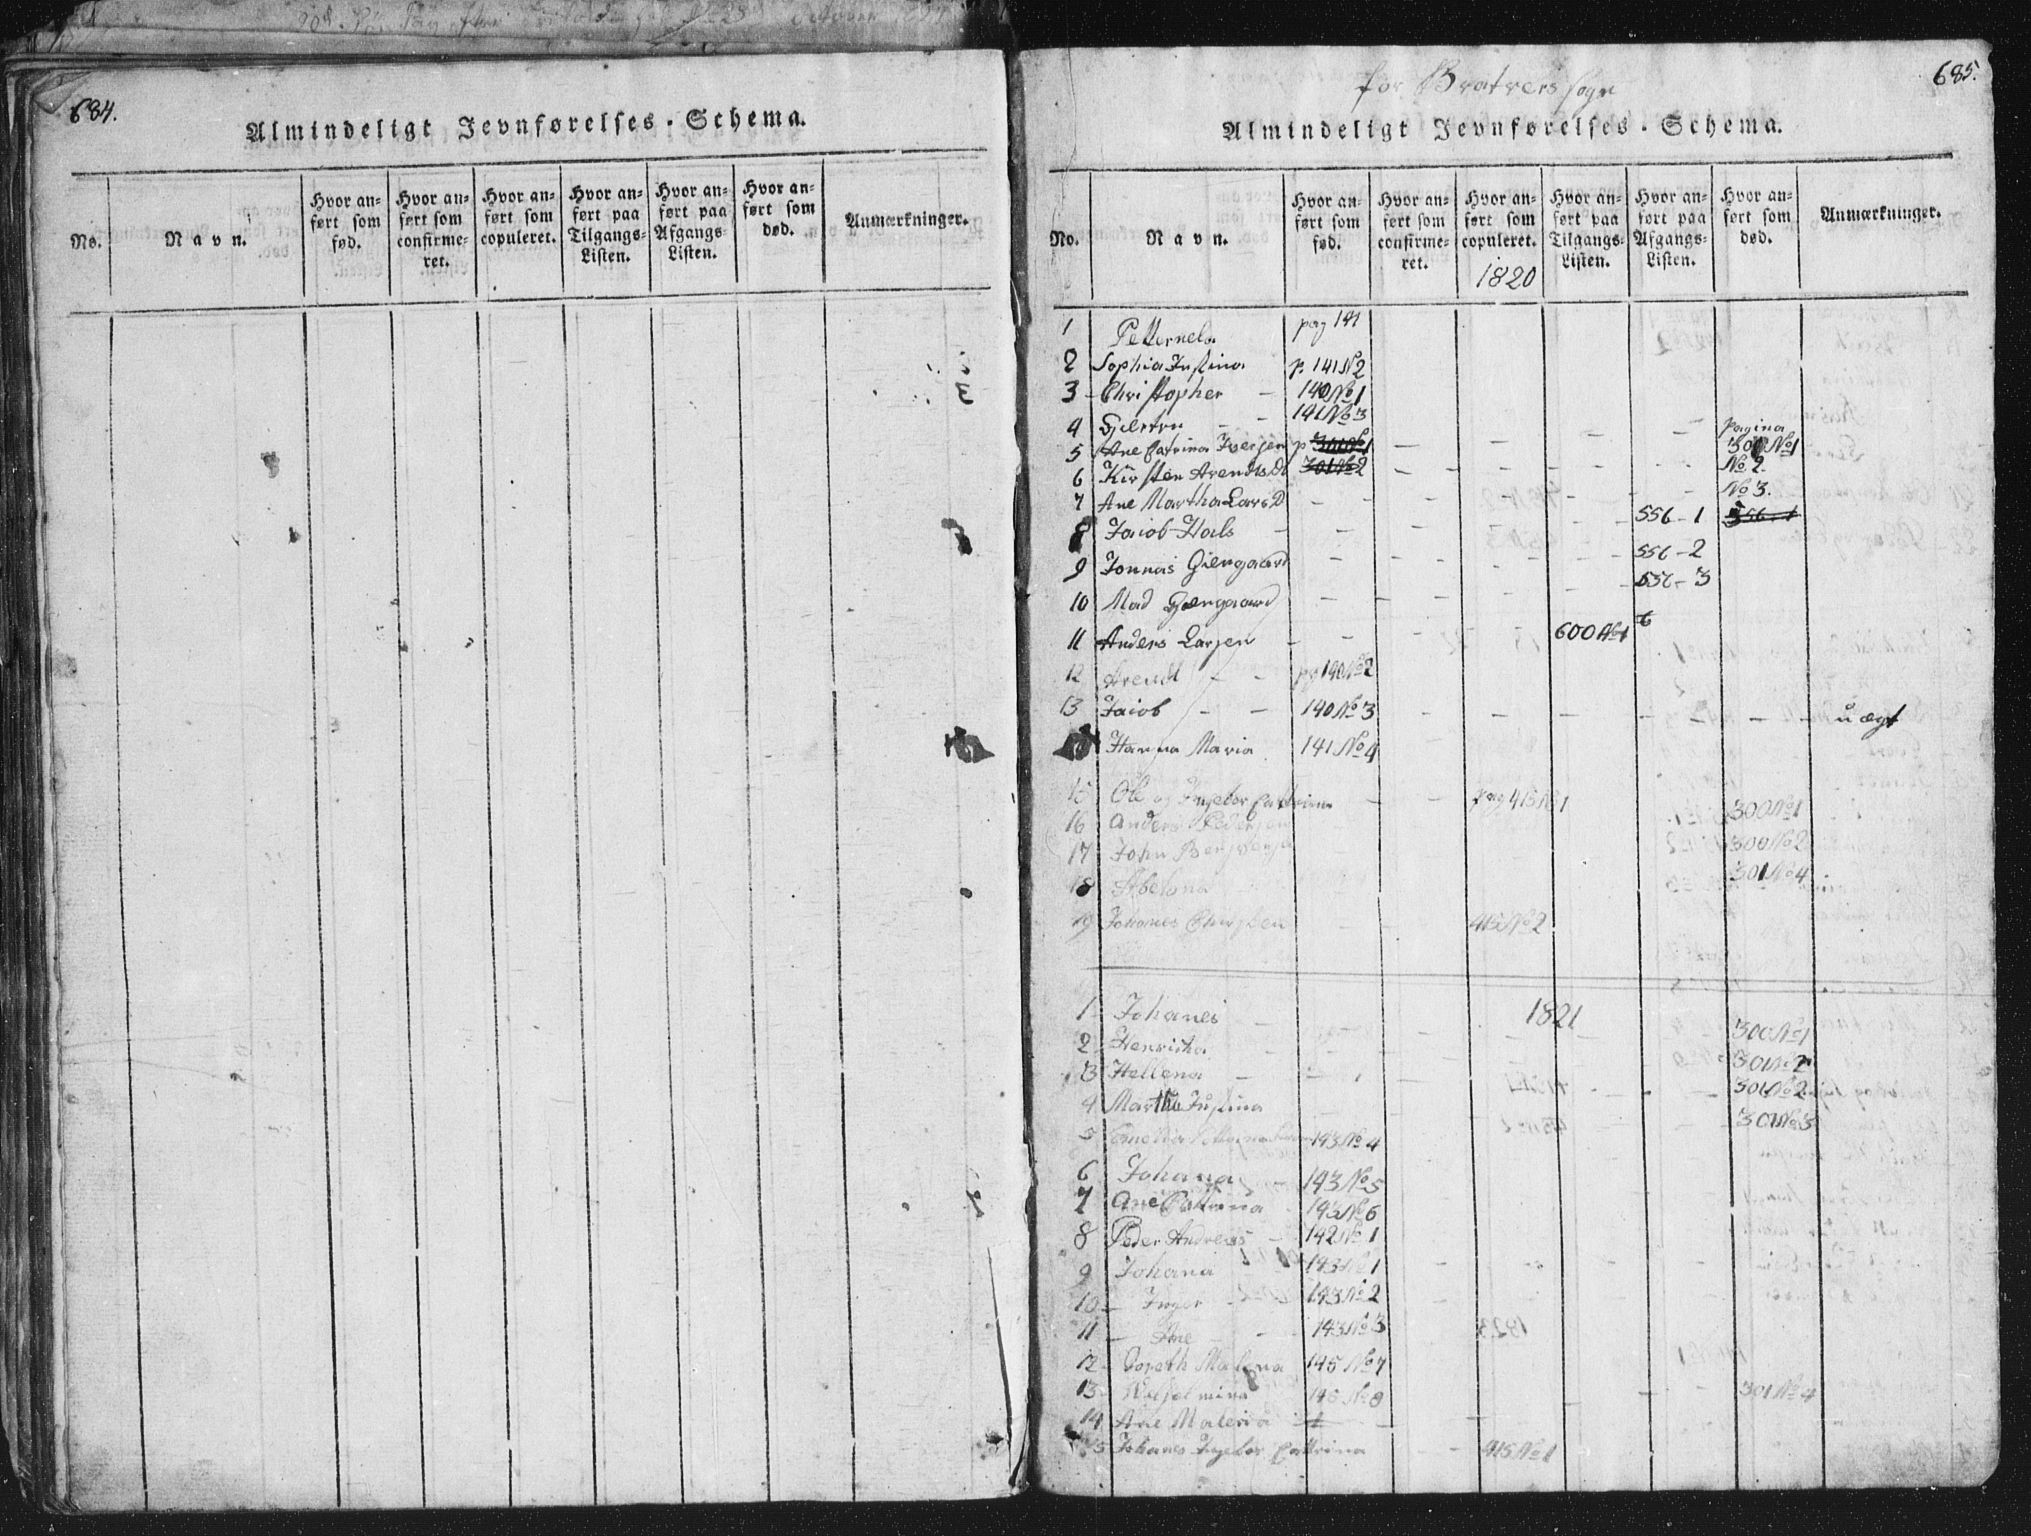 684.
Almindeligt Jevnførelses-Schema.
No. Navn. Hvor anført som fød. Hvor anført som confirmeret. Hvor anført som copuleret. Hvor anført paa Tilgangs-Listen. Hvor anført paa Afgangs-Listen. Hvor anført som død. Anmærkninger.
685.
for Bratvers sogn
Almindeligt Jevnførelses-Schema.
No. Navn. Hvor anført som fød. Hvor anført som confirmeret. Hvor anført som copuleret. Hvor anført paa Tilgangs-Listen. Hvor anført paa Afgangs-Listen. Hvor anført som død. Anmærkninger.
1820
1 Petternela pag 141
2 Sophia Justina p. 141 No 2
3 Christopher - 140 No 1
4 141 No 3
5 Ane Catrina Iversen p 301 No 1 pagina 300 No 1
6 Kirsten Arendts D 301 No 2 No 2.
7 Ane Martha Lars D No 3.
8 Jaiob Hals 556-1 556-1
9 Jonnas Giengaard 556-2
10 Mad Gjengaard 556-3
11 Anders Larsen 600 No 1
12 Arendt pag 140 No 2
13 Jaiob 140 No 3 u ægt
Hanna Maria 141 No 4
15 Ole og Ingebor Cattrina pag 415 No 1
16 Anders Pedersen 300 No 1
17 John 300 No 2
18 Abelona 301 No 4
19 Johanes Christen 415 No 2
1821
1 Johanes 300 No 1
2 Henricka 301 No 1
3 Hellena 301 No 2
4 Martha Justina 301 No 3
5 143 No 4
6 Johana 143 No 5
7 Ane Cattrina 143 No 6
8 Peder Andreas 142 No 1
9 Johana 143 No 1
10 Inger 143 No 2
11 Ane 143 No 3
12 Doreth Malena 145 No 7
13 145 No 8 301 No 4
14 Ane Maleria
15 Johanes Ingebor Cattrina 415 No 1